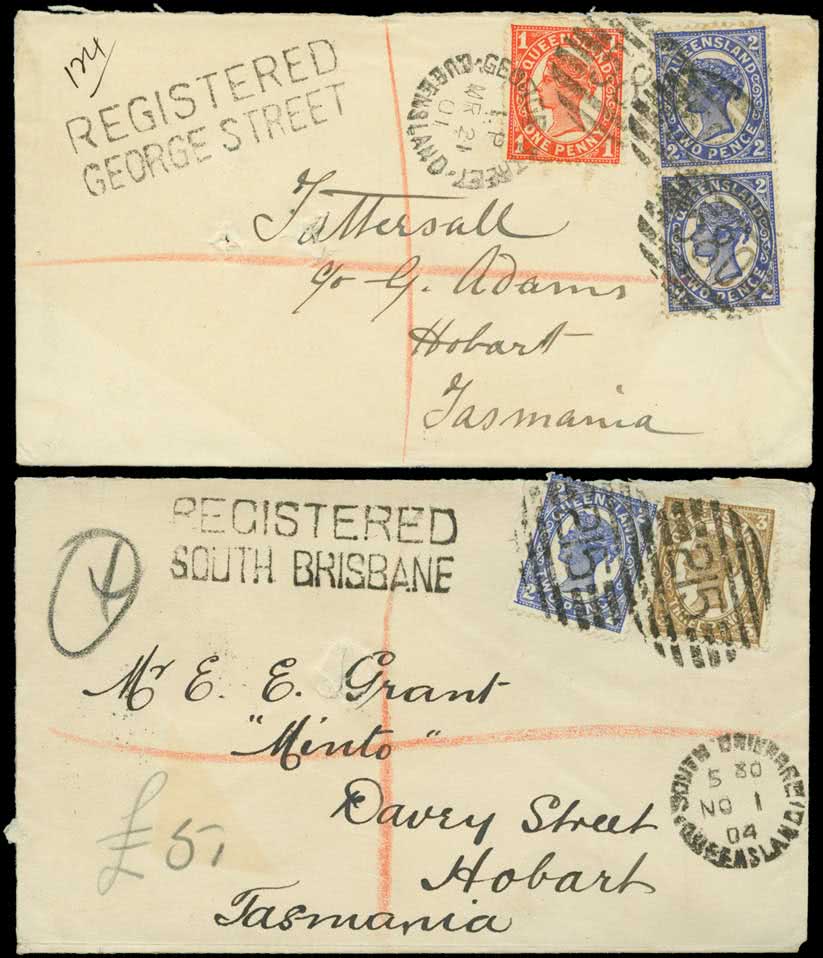 124
REGISTERED
GEORGE STREET
QUEENSLAND
1 P
MR 21
01
1 QUEENSLAND 1
1 ONE PENNY 1
QUEENSLAND 2
2 TWO PENCE 2
QUEENSLAND 2
TWO PENCE 2
Tattersall
c/o G. Adams
Hobart
Tasmania
REGISTERED
SOUTH BRISBANE
QUEENSLAND 2
2 TWO PENCE
215
3
215
4
Mr E. E. Grant
"Minto"
Davey Street
Hobart
Tasmania
£5/
SOUTH BRISBANE
5 30
NO 1
04
QUEENSLAND